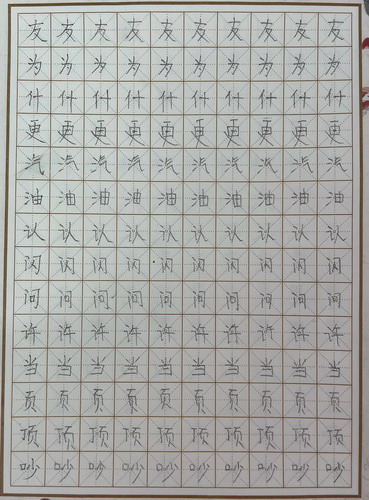 友友友友友友友友友友
为为为为为为为为为为
什什什什什什什什什什
更更更更更更更更更更
汽汽汽汽汽汽汽汽汽汽
油油油油油油油油油油
认认认认认认认认认认
闪闪闪闪闪闪闪闪闪闪
问问问问问问问问问问
许许许许许许许许许许
当当当当当当当当当当
页页页页页页页页页页
顶顶顶顶顶顶顶顶顶顶
吵吵吵吵吵吵吵吵吵吵